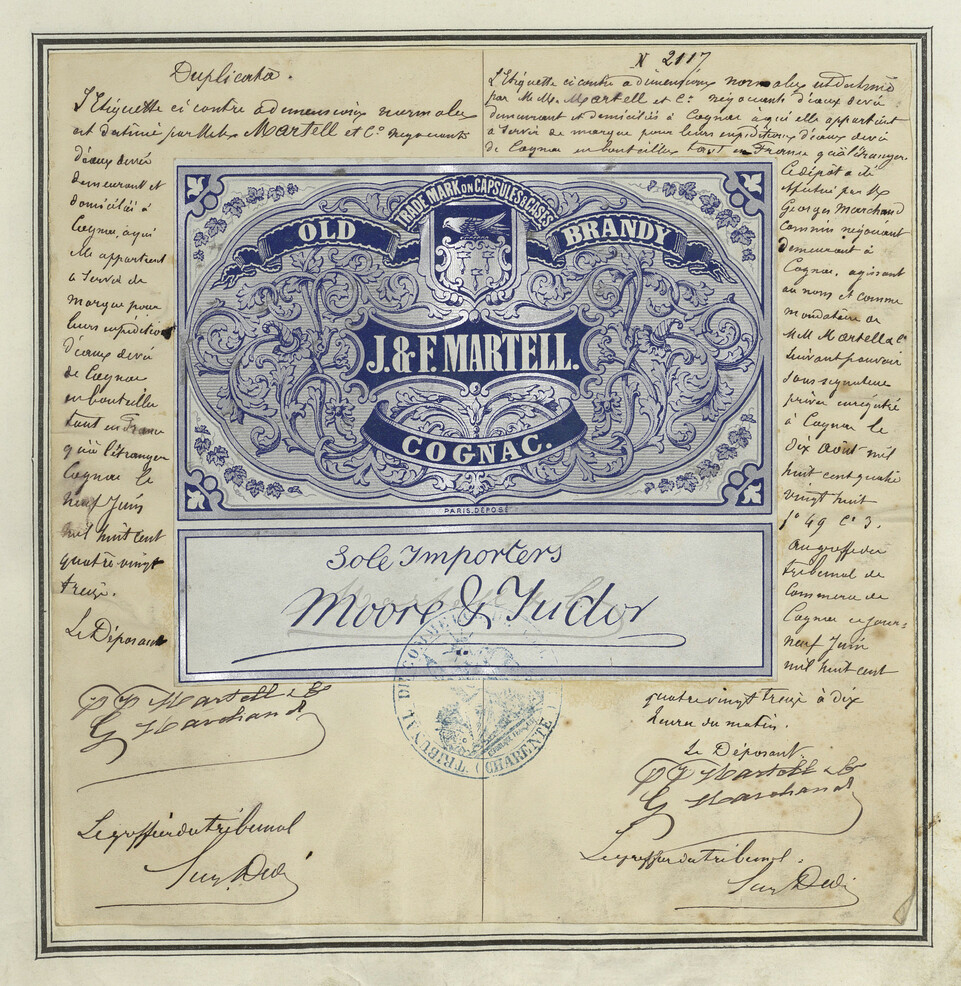 Duplicata.
L'Etiquette ci contre a dimensions normales
est destiné par MM. Martell et Cº. négociants
d'eaux devie
demeurant et
domiciliés à
Cognac, à qui
elle appartient
à servir de
marque pour
leurs expéditions
d'eaux devie
de Cognac
en bouteilles
tant en France
qu'à l'étranger
Cognac le
neuf Juin
mil huit cent
quatre-vingt
treize.
Le Déposant
PP Martell & Cº
G Marchand
Le greffier du tribunal
N 2117
L'Etiquette ci contre a dimensions normales est destiné
par MM. Martell et Cº. négociants d'eaux devie
demeurant et domiciliés à Cognac à qui elle appartient
à servir de marque pour leurs expéditions d'eaux devie
de Cognac en bouteilles tant en France qu'à l'étranger.
Le dépôt a été
effectué par M
Georges Marchand
Commis négociant
demeurant à
Cognac, agissant
au nom et comme
mandataire de
MM Martell & Cº
suivant pouvoir
sous signature
privée enregistré
à Cognac le
dix Août mil
huit cent quatre
vingt huit
fº 49 Cº 3.
au greffe du
tribunal de
Commerce de
Cognac ce jour
neuf Juin
mil huit cent
quatre vingt treize à dix
heures du matin.
Le Déposant
PP Martell & Cº
G Marchand
Le greffier du tribunal.
TRADE MARK ON CAPSULES & CASES
OLD BRANDY
J. & F. MARTELL.
COGNAC.
PARIS. DÉPOSÉ
Sole Importers
Moore & Tudor
TRIBUNAL DE COMMERCE
(CHARENTE)